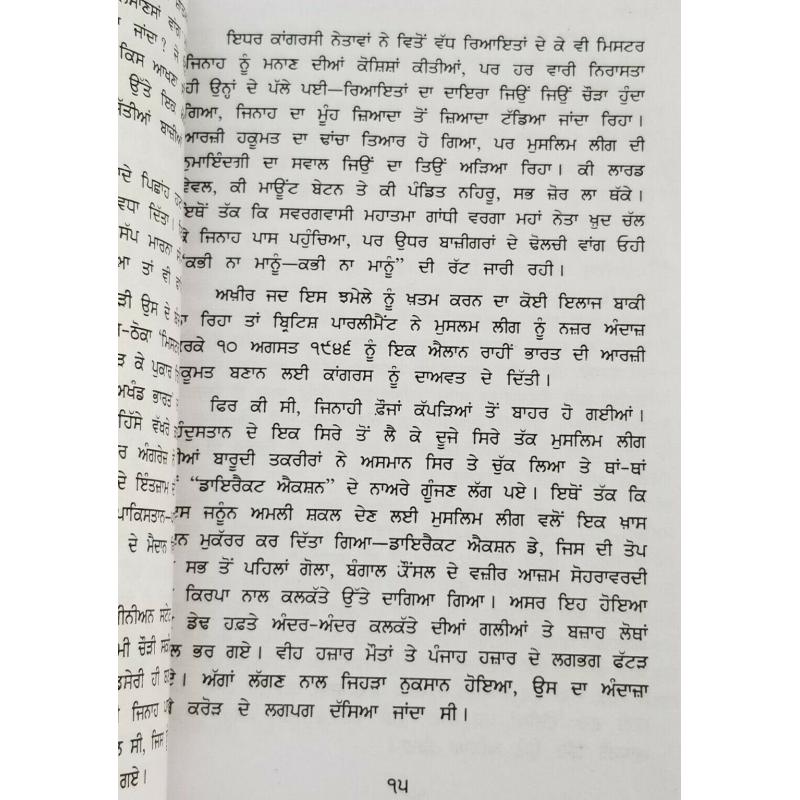 ਇਧਰ ਕਾਂਗਰਸੀ ਨੇਤਾਵਾਂ ਨੇ ਵਿਤੋਂ ਵੱਧ ਰਿਆਇਤਾਂ ਦੇ ਕੇ ਵੀ ਮਿਸਟਰ
ਜਿਨਾਹ ਨੂੰ ਮਨਾਣ ਦੀਆਂ ਕੋਸ਼ਿਸ਼ਾਂ ਕੀਤੀਆਂ, ਪਰ ਹਰ ਵਾਰੀ ਨਿਰਾਸਤਾ
ਹੀ ਉਨ੍ਹਾਂ ਦੇ ਪੱਲੇ ਪਈ—ਰਿਆਇਤਾਂ ਦਾ ਦਾਇਰਾ ਜਿਉਂ ਜਿਉਂ ਚੌੜਾ ਹੁੰਦਾ
ਗਿਆ, ਜਿਨਾਹ ਦਾ ਮੂੰਹ ਜ਼ਿਆਦਾ ਤੋਂ ਜ਼ਿਆਦਾ ਟੱਡਿਆ ਜਾਂਦਾ ਰਿਹਾ।
ਆਰਜ਼ੀ ਹਕੂਮਤ ਦਾ ਢਾਂਚਾ ਤਿਆਰ ਹੋ ਗਿਆ, ਪਰ ਮੁਸਲਿਮ ਲੀਗ ਦੀ
ਨੁਮਾਇੰਦਗੀ ਦਾ ਸਵਾਲ ਜਿਉਂ ਦਾ ਤਿਉਂ ਅੜਿਆ ਰਿਹਾ। ਕੀ ਲਾਰਡ
ਵੇਵਲ, ਕੀ ਮਾਊਂਟ ਬੇਟਨ ਤੇ ਕੀ ਪੰਡਿਤ ਨਹਿਰੂ, ਸਭ ਜ਼ੋਰ ਲਾ ਥੱਕੇ।
ਇਥੋਂ ਤੱਕ ਕਿ ਸਵਰਗਵਾਸੀ ਮਹਾਤਮਾ ਗਾਂਧੀ ਵਰਗਾ ਮਹਾਂ ਨੇਤਾ ਖ਼ੁਦ ਚੱਲ
ਕੇ ਜਿਨਾਹ ਪਾਸ ਪਹੁੰਚਿਆ, ਪਰ ਉਧਰ ਬਾਜ਼ੀਗਰਾਂ ਦੇ ਢੋਲਚੀ ਵਾਂਗ ਓਹੀ
“ਕਭੀ ਨਾ ਮਾਨੂੰ—ਕਭੀ ਨਾ ਮਾਨੂੰ” ਦੀ ਰੱਟ ਜਾਰੀ ਰਹੀ।
ਅਖ਼ੀਰ ਜਦ ਇਸ ਝਮੇਲੇ ਨੂੰ ਖ਼ਤਮ ਕਰਨ ਦਾ ਕੋਈ ਇਲਾਜ ਬਾਕੀ
ਨਾ ਰਿਹਾ ਤਾਂ ਬ੍ਰਿਟਿਸ਼ ਪਾਰਲੀਮੈਂਟ ਨੇ ਮੁਸਲਮ ਲੀਗ ਨੂੰ ਨਜ਼ਰ ਅੰਦਾਜ਼
ਕਰਕੇ ੧੦ ਅਗਸਤ ੧੯੪੬ ਨੂੰ ਇਕ ਐਲਾਨ ਰਾਹੀਂ ਭਾਰਤ ਦੀ ਆਰਜ਼ੀ
ਹਕੂਮਤ ਬਣਾਨ ਲਈ ਕਾਂਗਰਸ ਨੂੰ ਦਾਅਵਤ ਦੇ ਦਿੱਤੀ।
ਫਿਰ ਕੀ ਸੀ, ਜਿਨਾਹੀ ਫ਼ੌਜਾਂ ਕੱਪੜਿਆਂ ਤੋਂ ਬਾਹਰ ਹੋ ਗਈਆਂ।
ਹਿੰਦੁਸਤਾਨ ਦੇ ਇਕ ਸਿਰੇ ਤੋਂ ਲੈ ਕੇ ਦੂਜੇ ਸਿਰੇ ਤੱਕ ਮੁਸਲਿਮ ਲੀਗ
ਦੀਆਂ ਬਾਰੂਦੀ ਤਕਰੀਰਾਂ ਨੇ ਅਸਮਾਨ ਸਿਰ ਤੇ ਚੁੱਕ ਲਿਆ ਤੇ ਥਾਂ-ਥਾਂ
“ਡਾਇਰੈਕਟ ਐਕਸ਼ਨ” ਦੇ ਨਾਅਰੇ ਗੂੰਜਣ ਲੱਗ ਪਏ। ਇਥੋਂ ਤੱਕ ਕਿ
ਇਸ ਜਨੂੰਨ ਅਮਲੀ ਸ਼ਕਲ ਦੇਣ ਲਈ ਮੁਸਲਿਮ ਲੀਗ ਵਲੋਂ ਇਕ ਖ਼ਾਸ
ਦਿਨ ਮੁਕੱਰਰ ਕਰ ਦਿੱਤਾ ਗਿਆ—ਡਾਇਰੈਕਟ ਐਕਸ਼ਨ ਡੇ, ਜਿਸ ਦੀ ਤੋਪ
ਸਭ ਤੋਂ ਪਹਿਲਾਂ ਗੋਲਾ, ਬੰਗਾਲ ਕੌਂਸਲ ਦੇ ਵਜ਼ੀਰ ਆਜ਼ਮ ਸੋਹਰਾਵਰਦੀ
ਕਿਰਪਾ ਨਾਲ ਕਲਕੱਤੇ ਉੱਤੇ ਦਾਗਿਆ ਗਿਆ। ਅਸਰ ਇਹ ਹੋਇਆ
ਡੇਢ ਹਫ਼ਤੇ ਅੰਦਰ-ਅੰਦਰ ਕਲਕੱਤੇ ਦੀਆਂ ਗਲੀਆਂ ਤੇ ਬਜ਼ਾਹ ਲੋਥਾਂ
ਭਰ ਗਏ। ਵੀਹ ਹਜ਼ਾਰ ਮੌਤਾਂ ਤੇ ਪੰਜਾਹ ਹਜ਼ਾਰ ਦੇ ਲਗਭਗ ਫੱਟੜ
ਅੱਗਾਂ ਲੱਗਣ ਨਾਲ ਜਿਹੜਾ ਨੁਕਸਾਨ ਹੋਇਆ, ਉਸ ਦਾ ਅੰਦਾਜ਼ਾ
ਕਰੋੜ ਦੇ ਲਗਪਗ ਦੱਸਿਆ ਜਾਂਦਾ ਸੀ।
੧੫